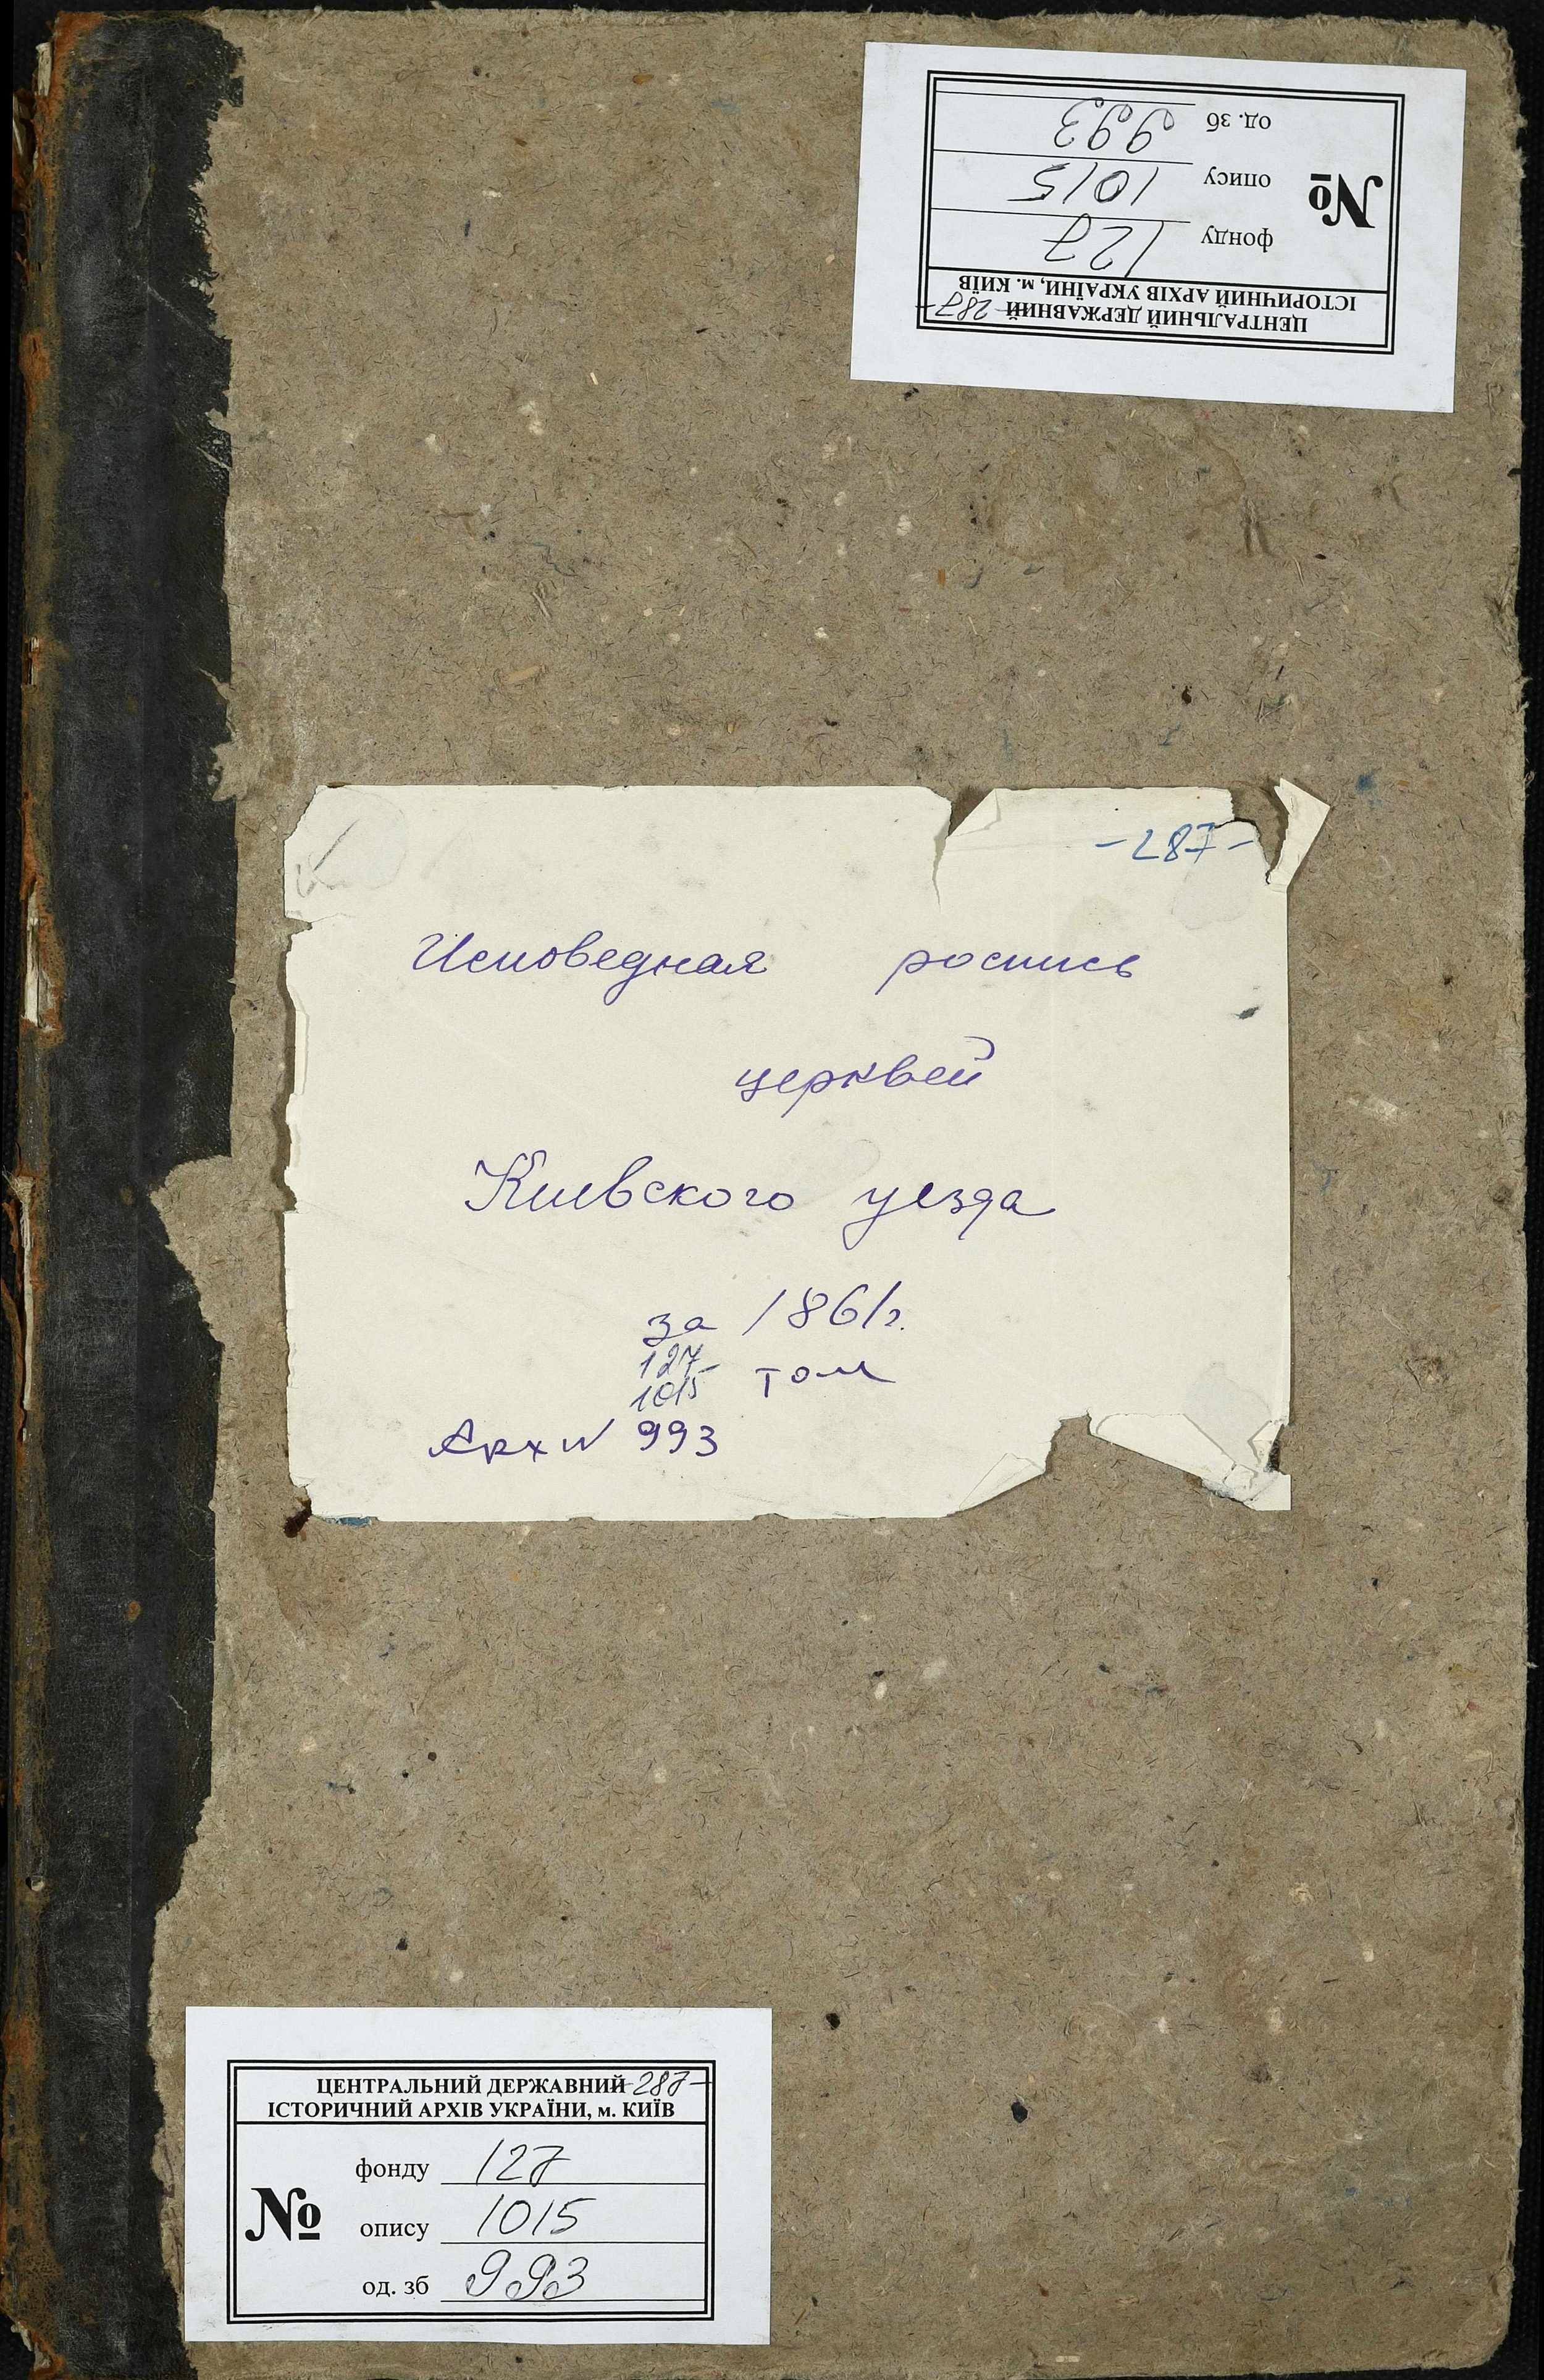 ЦЕНТРАЛЬНИЙ ДЕРЖАВНИЙ -287-
ІСТОРИЧНИЙ АРХІВ УКРАЇНИ, м. КИЇВ
№
фонду 127
опису 1015
од. зб 993
-287-
Исповедная роспись
церквей
Киевского уезда
за 1861г.
127-
1015 том
Арх N 993
ЦЕНТРАЛЬНИЙ ДЕРЖАВНИЙ -287-
ІСТОРИЧНИЙ АРХІВ УКРАЇНИ, м. КИЇВ
№
фонду 127
опису 1015
од. зб 993